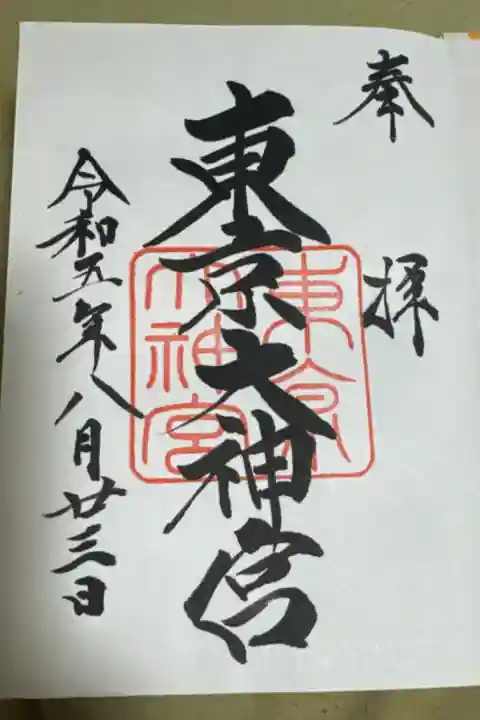 奉拝
東京大神宮
東京大神宮
令和五年八月廿三日